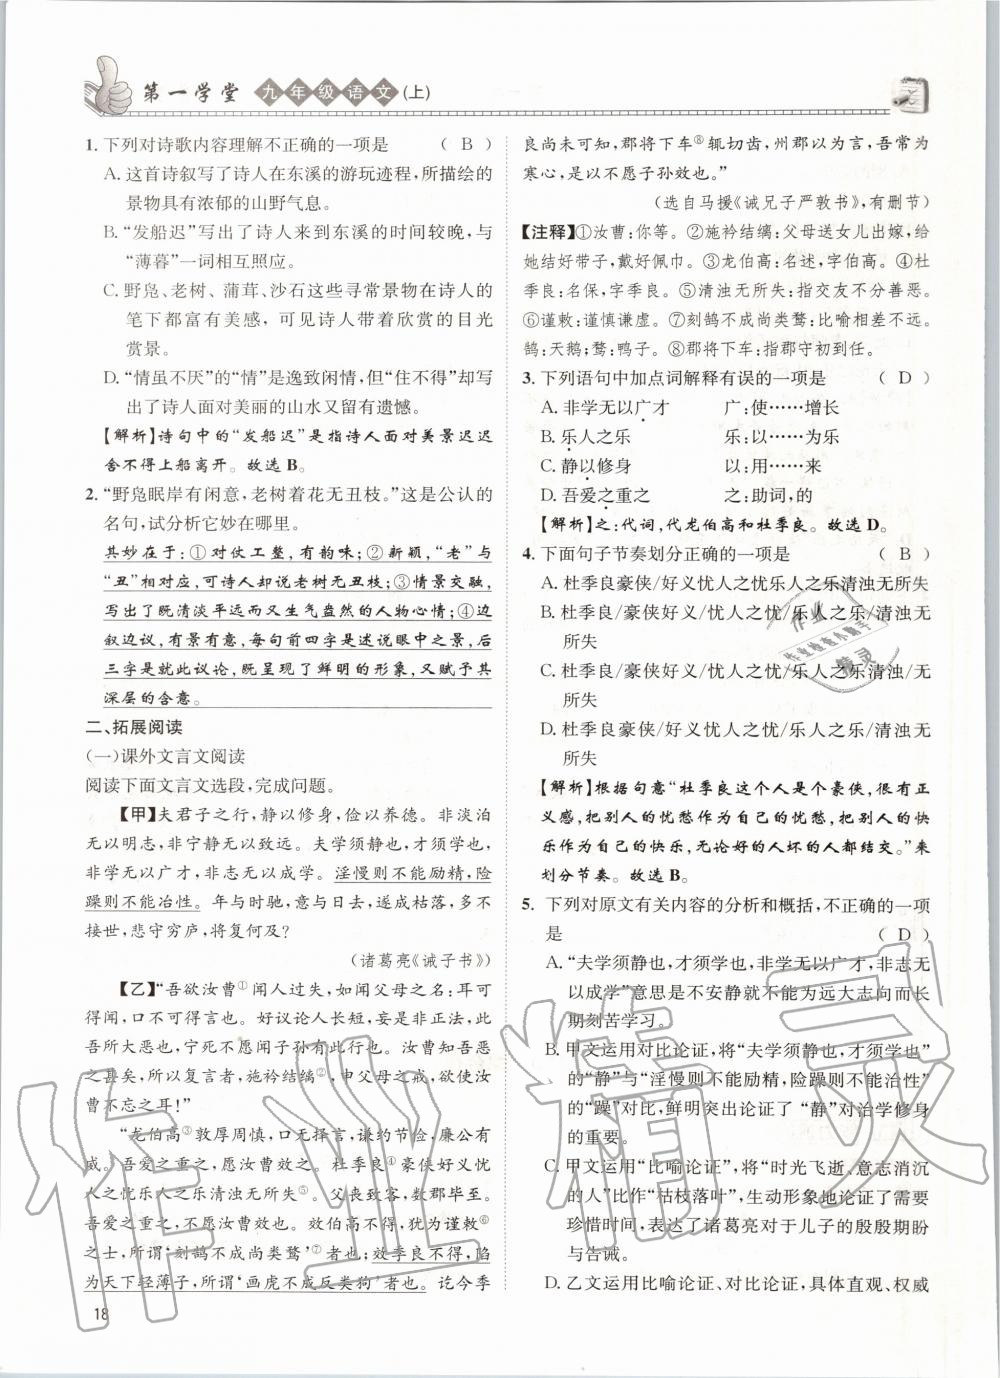 第一学堂 九年级语文(上)
1. 下列对诗歌内容理解不正确的一项是 ( B )
A. 这首诗叙写了诗人在东溪的游玩迹程,所描绘的
景物具有浓郁的山野气息。
B. “发船迟”写出了诗人来到东溪的时间较晚,与
“薄暮”一词相互照应。
C. 野凫、老树、蒲茸、沙石这些寻常景物在诗人的
笔下都富有美感,可见诗人带着欣赏的目光
赏景。
D. “情虽不厌”的“情”是逸致闲情,但“住不得”却写
出了诗人面对美丽的山水又留有遗憾。
【解析】诗句中的“发船迟”是指诗人面对美景迟迟
舍不得上船离开。故选 B。
2. “野凫眠岸有闲意,老树着花无丑枝。”这是公认的
名句,试分析它妙在哪里。
其妙在于:①对仗工整,有韵味;②新颖,“老”与
“丑”相对应,可诗人却说老树无丑枝;③情景交融,
写出了既清淡平远而又生气盎然的人物心情;④边
叙边议,有景有意,每句前四字是述说眼中之景,后
三字是就此议论,既呈现了鲜明的形象,又赋予其
深层的含意。
二、拓展阅读
(一)课外文言文阅读
阅读下面文言文选段,完成问题。
【甲】夫君子之行,静以修身,俭以养德。非淡泊
无以明志,非宁静无以致远。夫学须静也,才须学也,
非学无以广才,非志无以成学。淫慢则不能励精,险
躁则不能冶性。年与时驰,意与日去,遂成枯落,多不
接世,悲守穷庐,将复何及?
(诸葛亮《诫子书》)
【乙】“吾欲汝曹①闻人过失,如闻父母之名:耳可
得闻,口不可得言也。好议论人长短,妄是非正法,此
吾所大恶也,宁死不愿闻子孙有此行也。汝曹知吾恶
之甚矣,所以复言者,施衿结缡②,申父母之戒,欲使汝
曹不忘之耳!”
“龙伯高③敦厚周慎,口无择言,谦约节俭,廉公有
威。吾爱之重之,愿汝曹效之。杜季良④豪侠好义忧
人之忧乐人之乐清浊无所失⑤。父丧致客,数郡毕至。
吾爱之重之,不愿汝曹效也。效伯高不得,犹为谨敕⑥
之士,所谓‘刻鹄不成尚类鹜’⑦者也;效季良不得,陷
为天下轻薄子,所谓‘画虎不成反类狗’者也。讫今季
良尚未可知,郡将下车⑧辄切齿,州郡以为言,吾常为
寒心,是以不愿子孙效也。”
(选自马援《诫兄子严敦书》,有删节)
【注释】①汝曹:你等。②施衿结缡:父母送女儿出嫁,给
她结好带子,戴好佩巾。③龙伯高:名述,字伯高。④杜
季良:名保,字季良。⑤清浊无所失:指交友不分善恶。
⑥谨敕:谨慎谦虚。⑦刻鹄不成尚类鹜:比喻相差不远。
鹄:天鹅;鹜:鸭子。⑧郡将下车:指郡守初到任。
3. 下列语句中加点词解释有误的一项是 ( D )
A. 非学无以广才 广:使……增长
B. 乐人之乐 乐:以……为乐
C. 静以修身 以:用……来
D. 吾爱之重之 之:助词,的
【解析】之:代词,代龙伯高和杜季良。故选 D。
4. 下面句子节奏划分正确的一项是 ( B )
A. 杜季良豪侠/好义忧人之忧乐人之乐清浊无所失
B. 杜季良/豪侠好义/忧人之忧/乐人之乐/清浊无
所失
C. 杜季良豪侠/好义忧人之忧/乐人之乐清浊/无
所失
D. 杜季良豪侠好义/忧人之忧/乐人之乐/清浊无
所失
【解析】根据句意“杜季良这个人是个豪侠,很有正
义感,把别人的忧愁作为自己的忧愁,把别人的快
乐作为自己的快乐,无论好的人坏的人都结交。”来
划分节奏。故选 B。
5. 下列对原文有关内容的分析和概括,不正确的一项
是 ( D )
A. “夫学须静也,才须学也,非学无以广才,非志无
以成学”意思是不安静就不能为远大志向而长
期刻苦学习。
B. 甲文运用对比论证,将“夫学须静也,才须学也”
的“静”与“淫慢则不能励精,险躁则不能冶性”
的“躁”对比,鲜明突出论证了“静”对治学修身
的重要。
C. 甲文运用“比喻论证”,将“时光飞逝、意志消沉
的人”比作“枯枝落叶”,生动形象地论证了需要
珍惜时间,表达了诸葛亮对于儿子的殷殷期盼
与告诫。
D. 乙文运用比喻论证、对比论证,具体直观、权威
18
作业精灵